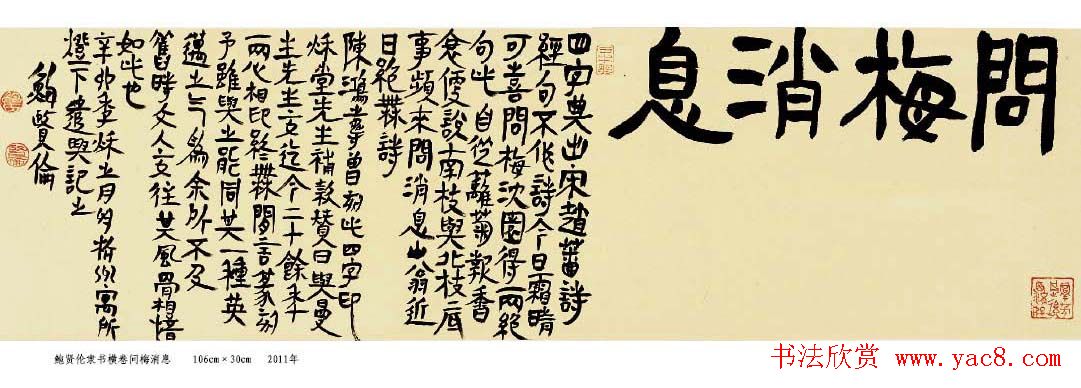 問梅消息
四字典出宋趙蕃詩
經旬不作詩今日霜晴
可喜問梅沈園得兩絕
句此自從蘺菊歇香
衾便說南枝與北枝底
事頻來問消息此翁近
日絕無詩
陳鴻壽曾刻此四字印
秌堂先生補款贊曰與曼
生先生之交迄今二十餘年
兩心相印終無間言篆刻
予雖與之能同其一種英
邁之气爲余所不及
舊時文人交往其風骨相惜
如此也
辛卯季秌之月 寓所
燈下遣興記之
鮑賢倫
鲍贤伦隶书横卷问梅消息 106cm×30cm 2011年
书法欣赏 www.yac8.com